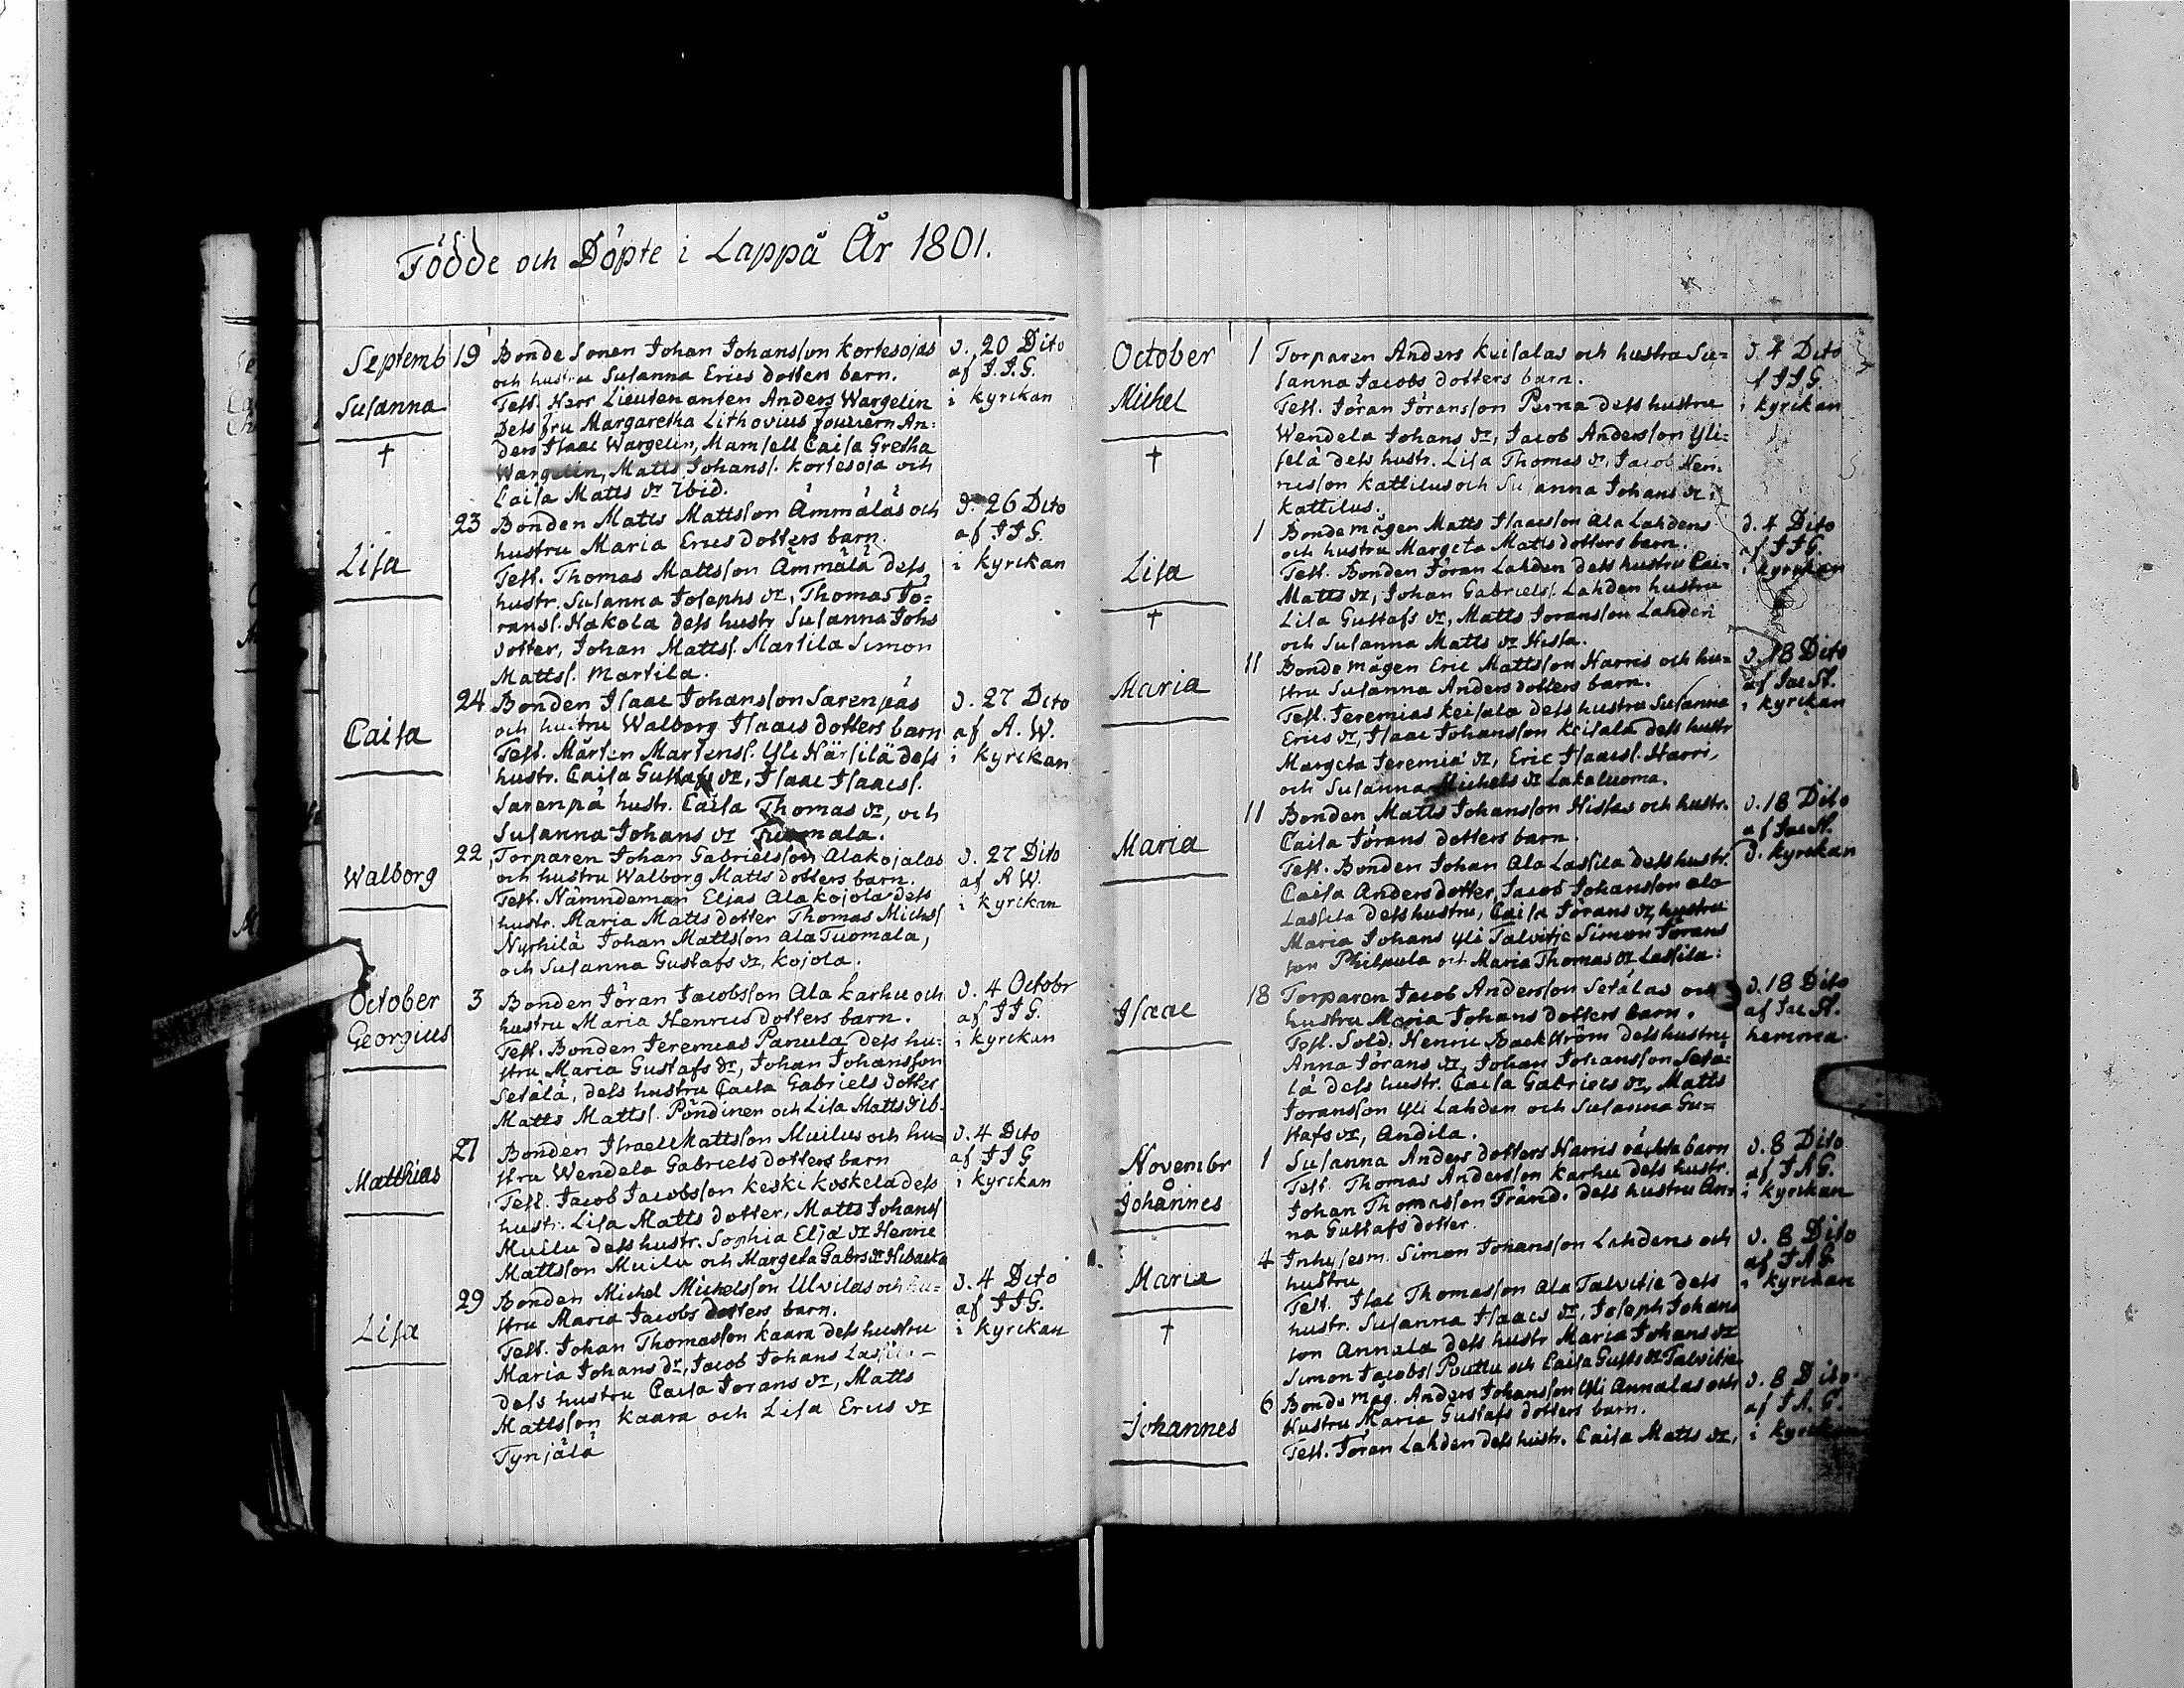 Födde och Döpte i Lappå År 1801.
Septemb 19 Bonde Sonen Johan Johansson Kortesojas d. 20 Dito
och hustru Susanna Erics dotters barn. af J. J. G.
Susanna Test. Herr Lieutenanten Anders Wargelin i Kyrckan
Dess fru Margaretha Lithovius fouriern An-
† ders Isaac Wargelin, Mamsell Caisa Gretha
Wargelin, Matts Johans. Kortesoja och
Caisa Matts dr Ibid.
23 Bonden Matts Mattsson Ämmäläs och d. 26 Dito
hustru Maria Erics dotters barn. af J J G.
Lisa Test. Thomas Mattsson Ämmälä dess i Kyrckan
hustr. Susanna Josephs dr, Thomas Jö-
rans. Hakola dess hustr Susanna Johs
dotter, Johan Matts. Martila Simon
Matts. Martila.
24 Bonden Isaac Johansson Sarenpäs d. 27 Dito
och hustru Walborg Isaacs dotters barn af A. W.
Caisa Test. Mårten Mårtens. Yli Härsilä dess i Kyrckan
hustr. Caisa Gustafs dr, Isaac Isaacs.
Sarenpä hustr. Caisa Thomas dr, och
Susanna Johans dr Tuomala.
22 Torparen Johan Gabrielsson Alakojalas d. 27 Dito
Walborg och hustru Walborg Matts dotters barn. af A W.
Test. Nämndeman Elias Alakojola dess i Kyrckan
hustr. Maria Matts dotter Thomas Michs
Nyrhilä Johan Mattsson Ala Tuomala,
och Susanna Gustafs dr, Kojola.
October 3 Bonden Jöran Jacobsson Ala Karhu och d. 4 Octobr
Georgius hustru Maria Henrics dotters barn. af J J G.
Test. Bonden Jeremias Panula dess hu- i Kyrckan
stru Maria Gustafs dr, Johan Johansson
Setälä, dess hustru Caisa Gabriels dotter
Matts Matts. Pöndinen och Lisa Matts d ib.
27 Bonden Israel Mattsson Muilus och hu- d. 4 Dito
Matthias stru Wendela Gabriels dotters barn af J J G
Test. Jacob Jacobsson Keski Koskela dess i Kyrckan
hustr. Lisa Matts dotter, Matts Johans
Muilu dess hustr. Sophia Eliæ dr Henric
Mattsson Muilu och Margeta Gabrs dr
29 Bonden Michel Michelsson Ulvilas och hu- d. 4 Dito
stru Maria Jacobs dotters barn. af J J G.
Lisa Test. Johan Thomasson Kaara dess hustru i Kyrckan
Maria Johans dr, Jacob Johans Lassila
dess hustru Caisa Jörans dr, Matts
Mattsson Kaara och Lisa Erics dr
Tynjälä
October 1 Torparen Anders Keisalas och hustru Su- d. 4 Dito
sanna Jacobs dotters barn. af J J G.
Michel Test. Jöran Jöransson Perna dess hustru i Kyrckan
Wendela Johans dr, Jacob Andersson Yli-
† selä dess hustr. Lisa Thomas dr, Jacob Hen-
ricsson Kattilus och Susanna Johans dr
Kattilus.
1 Bonde mågen Matts Isaacsson Ala Lahdens d. 4 Dito
och hustru Margeta Matts dotters barn. af J J G.
Lisa Test. Bonden Jöran Lahden dess hustru Cai- i Kyrckan
Matts dr, Johan Gabriels. Lahden hustru
† Lisa Gustafs dr, Matts Jöransson Lahden
och Susanna Matts dr Hista.
11 Bonde mågen Eric Mattsson Harris och hu- d. 18 Dito
Maria stru Susanna Anders dotters barn. af Jac St.
Test. Jeremias Keisala dess hustru Susanna i Kyrckan
Erics dr, Isaac Johansson Keisala dess hustr
Margeta Jeremiæ dr, Eric Isaacs. Harri,
och Susanna Michels dr Lakaluoma.
11 Bonden Matts Johansson Histas och hustr. d. 18 Dito
Maria Caisa Jörans dotters barn. af Jac St.
Test. Bonden Johan Ala Lassila dess hustr. d. Kyrckan
Caisa Anders dotter, Jacob Johansson ala
Lassila dess hustru, Caisa Jörans dr, hustru
Maria Johans Yli Talvitje Simon Jörans
son Philpula och Maria Thomas dr Lassila.
18 Torparen Jacob Andersson Setälas och d. 18 Dito
Isaac hustru Maria Johans dotters barn. af Jac St.
Test. Sold. Henric Backström dess hustru hemma.
Anna Jörans dr, Johan Johansson Setä-
lä dess hustr. Caisa Gabriels dr, Matts
Jöransson Yli Lahden och Susanna Gu-
stafs dr, Andila.
Novembr 1 Susanna Anders dotters Harris oächta barn d. 8 Dito
Test. Thomas Andersson Karhu dess hustr. af J A G.
Johannes Johan Thomasson Tränd. dess hustru An- i Kyrckan
na Gustafs dotter.
4 Inhysesm. Simon Johansson Lahdens och d. 8 Dito
Maria hustru af J A G.
Test. Isac Thomasson Ala Talvitje dess i Kyrckan
hustr. Susanna Isaacs dr, Joseph Johans
† son Annala dess hustr Maria Johans dr
Simon Jacobs. Pouttu och Caisa Gusts dr Talvitje
6 Bonde mag. Anders Johansson Yli Annalas och d. 8 Dito
Johannes Hustru Maria Gustafs dotters barn. af J A. G.
Test. Jöran Lahden dess hustr. Caisa Matts dr, i Kyrckan